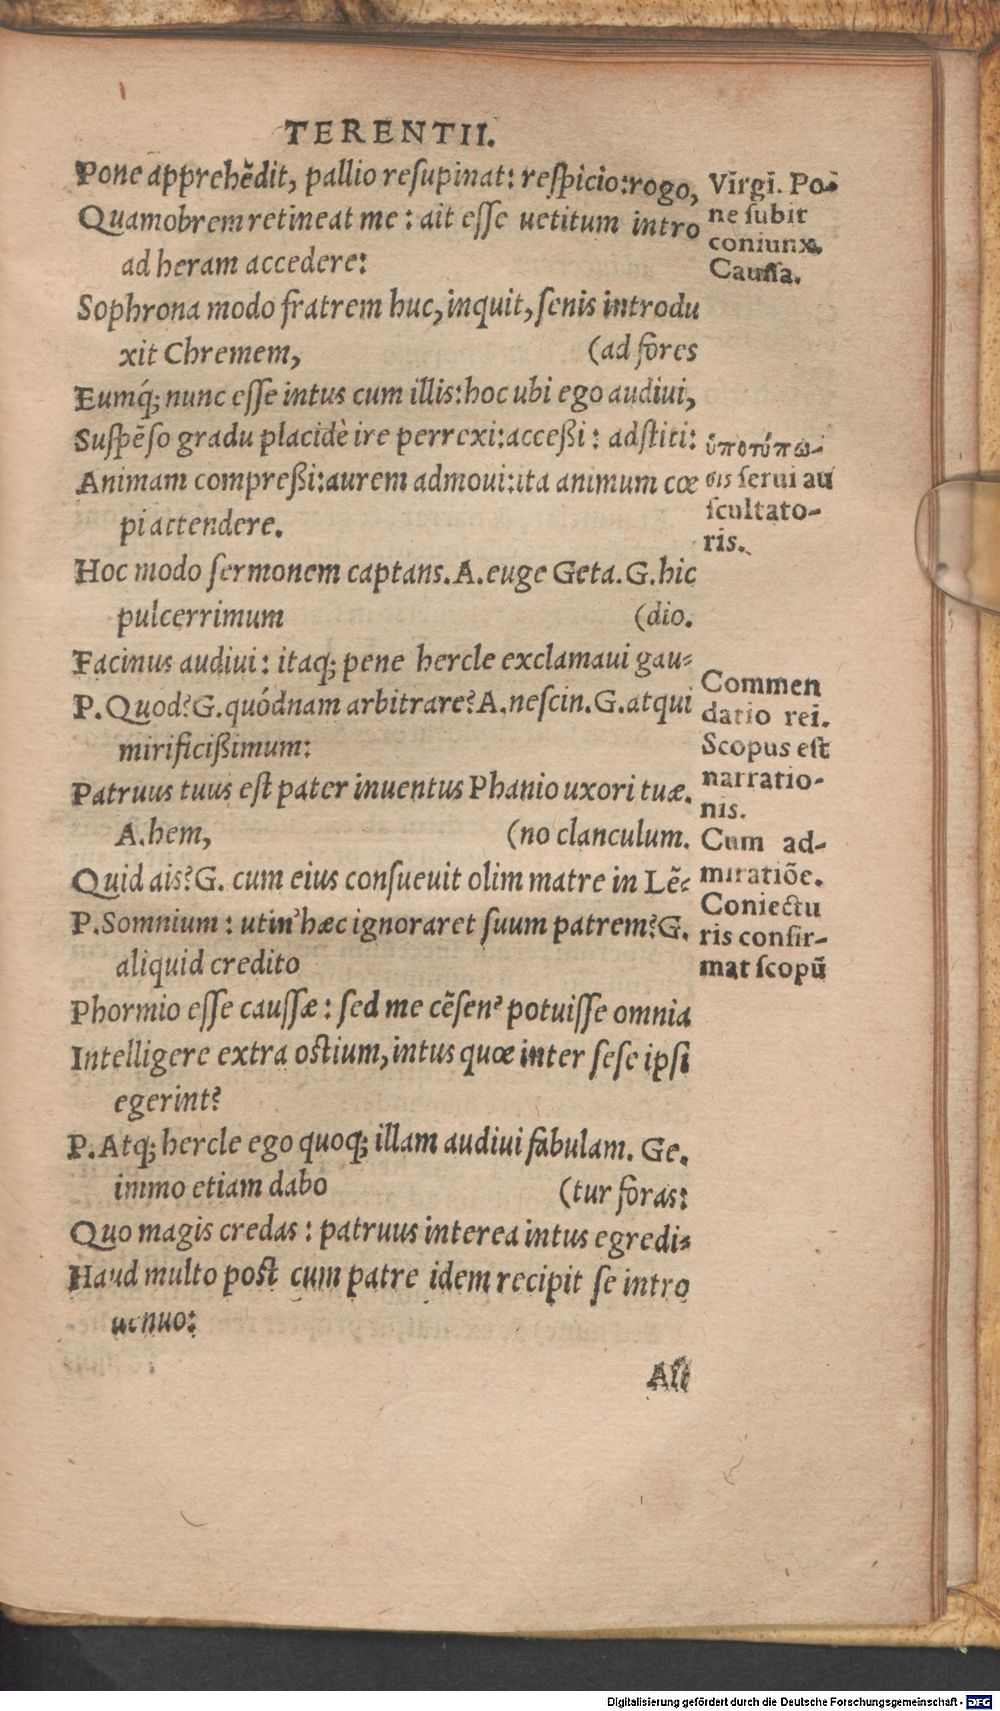 TERENTII.
Pone apprehẽdit, pallio resupinat: respicio: rogo,
Quamobrem retineat me: ait esse uetitum intro
ad heram accedere:
Sophrona modo fratrem huc, inquit, senis introdu
xit Chremem, (ad fores
Eumq́; nunc esse intus cum illis: hoc ubi ego audiui,
Suspẽso gradu placidè ire perrexi: acceßi: adstiti:
Animam compreßi: aurem admoui: ita animum cœ
pi attendere.
Hoc modo sermonem captans. A. euge Geta. G. hic
pulcerrimum (dio.
Facinus audiui: itaq; pene hercle exclamaui gau-
P. Quod? G. quódnam arbitrare? A. nescin. G. atqui
mirificißimum:
Patruus tuus est pater inuentus Phanio uxori tuæ.
A. hem, (no clanculum.
Quid ais? G. cum eius consueuit olim matre in Lẽ-
P. Somnium: utin' hæc ignoraret suum patrem? G.
aliquid credito
Phormio esse caussæ: sed me cẽsen' potuisse omnia
Intelligere extra ostium, intus quæ inter sese ipsi
egerint?
P. Atq; hercle ego quoq; illam audiui fabulam. Ge.
immo etiam dabo (tur foras:
Quo magis credas: patruus interea intus egredi-
Haud multo post cum patre idem recipit se intro
uenuo:
Ass
Virgĩ. Po-
ne subit
coniunx.
Caussa.
ὑποτύπω-
σις serui au
scultato-
ris.
Commen
datio rei.
Scopus est
narratio-
nis.
Cum ad-
miratiõe.
Coniectu
ris confir-
mat scopũ
Digitalisierung gefördert durch die Deutsche Forschungsgemeinschaft - DFG